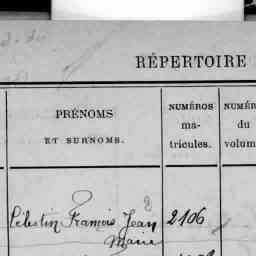 RÉPERTOIRE
PRÉNOMS
ET SURNOMS.
NUMÉROS
ma-
tricules.
NUMÉR
du
volum
Célestin François Jean 2106
Marie